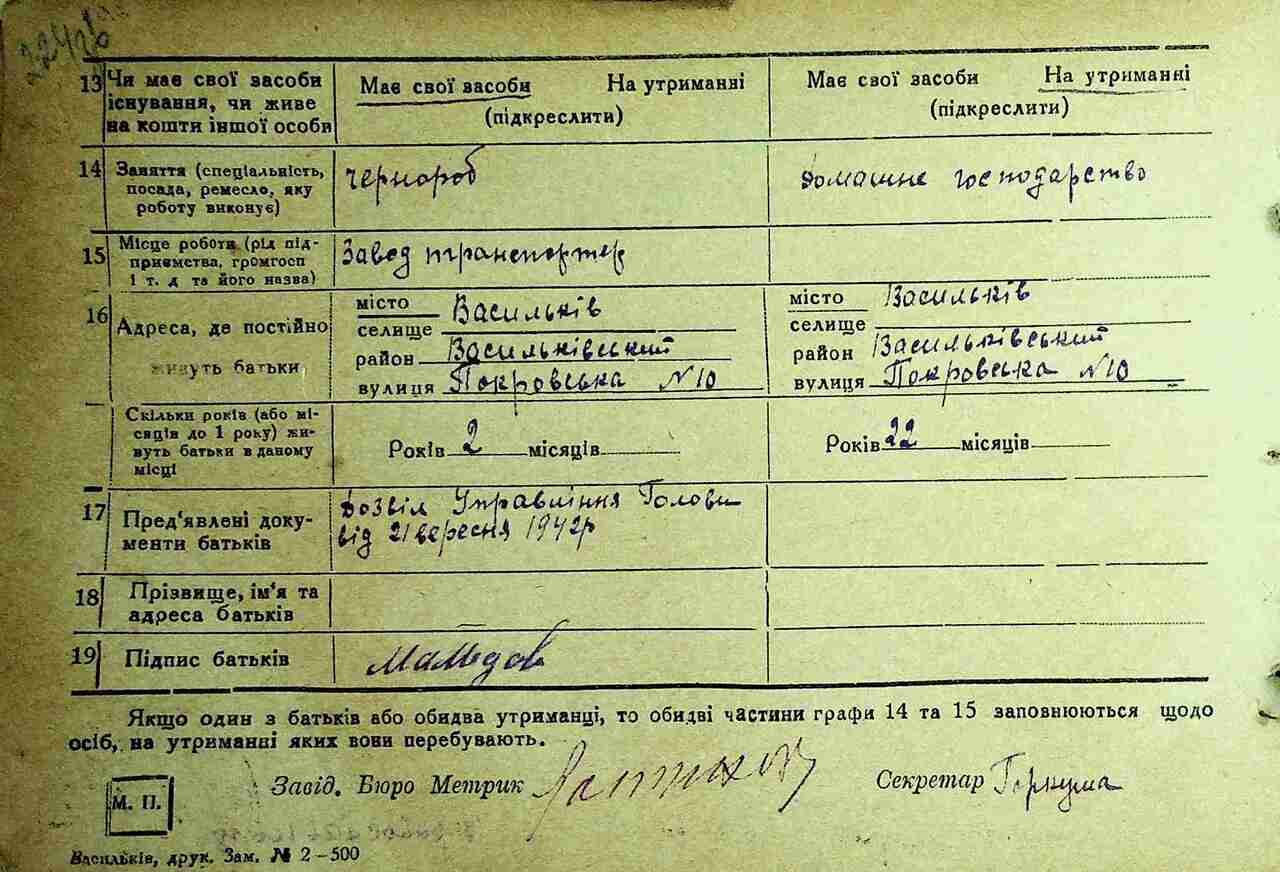 13 Чи має свої засоби існування, чи живе на кошти іншої особи
Має свої засоби На утриманні
(підкреслити)
Має свої засоби На утриманні
(підкреслити)
14 Заняття (спеціальність, посада, ремесло, яку роботу виконує)
Чернороб
домашнє господарство
15 Місце роботи (рід підприємства, громгосп і т. д та його назва)
Завод транспортер
16 Адреса, де постійно живуть батьки
місто Васильків
селище
район Васильківський
вулиця Покровська N 10
місто Васильків
селище
район Васильківський
вулиця Покровська N 10
Скільки років (або місяців до 1 року) живуть батьки в даному місці
Років 2 місяців
Років 22 місяців
17 Пред'явлені документи батьків
Дозвіл Управління Голови
від 21 вересня 1942р
18 Прізвище, ім'я та адреса батьків
19 Підпис батьків
Якщо один з батьків або обидва утриманці, то обидві частини графи 14 та 15 заповнюються щодо
осіб, на утриманні яких вони перебувають.
Завід. Бюро Метрик
Секретар
М. П.
Васильків, друк. Зам. № 2-500